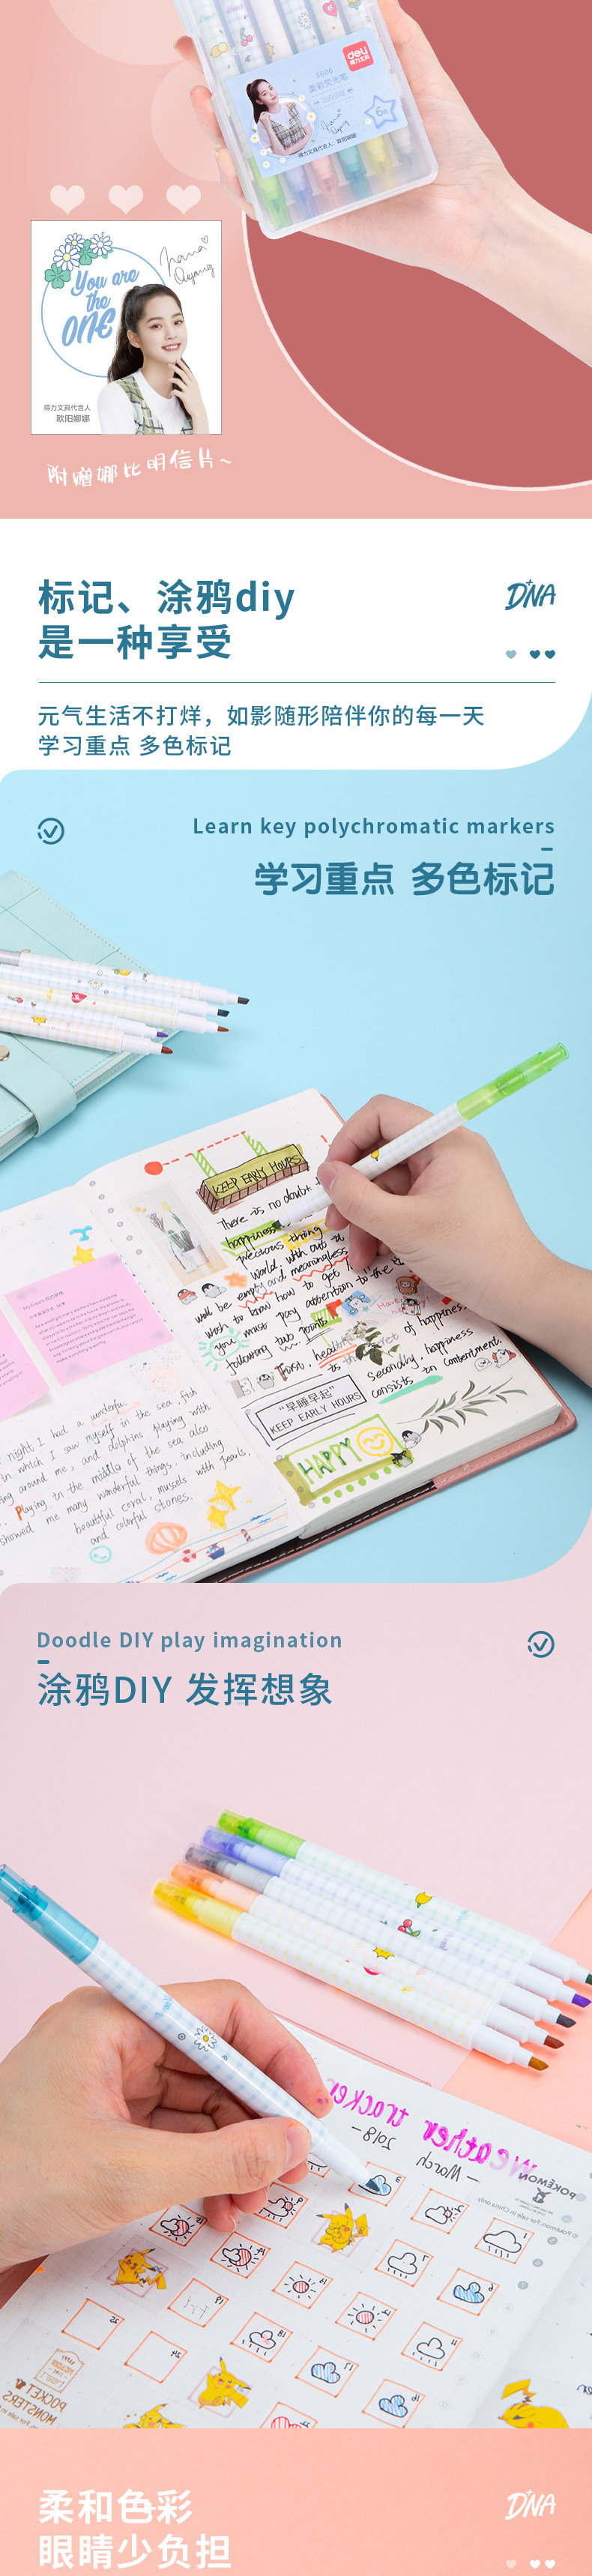 deli
得力文具
S606
柔彩荧光笔
6色
得力文具代言人：欧阳娜娜
You are
the
ONE
nana
Ouyang
得力文具代言人
欧阳娜娜
附赠娜比明信片~
标记、涂鸦diy
是一种享受
DNA
元气生活不打烊，如影随形陪伴你的每一天
学习重点 多色标记
Learn key polychromatic markers
学习重点 多色标记
KEEP EARLY HOURS
There is no doubt
happiness
precious thing
world. with out it
will be empty and meaningless.
wish to know how to get
you must pay attention to the
following two points
First, health
is the secret of happiness
Secondly, happiness
consists in contentment.
“早睡早起”
KEEP EARLY HOURS
HAPPY
night I had a wonderful
in which I saw myself in the sea, fish
ing around me, and dolphins playing with
Playing in the middle of the sea also
showed me many wonderful things, including
beautiful coral, mussels with pearls,
and colorful stones.
Doodle DIY play imagination
涂鸦DIY 发挥想象
weather tracker
2018-
- March
POKÉMON
POCKET
MONSTERS
柔和色彩
眼睛少负担
DNA